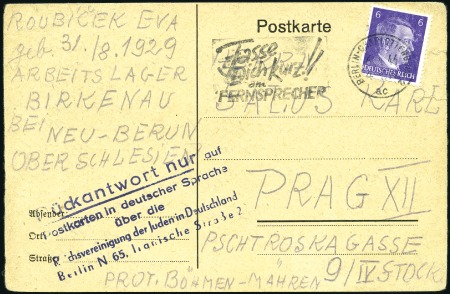 ROUBÍČEK EVA
geb. 31./8. 1929
ARBEITSLAGER
BIRKENAU
BEI
NEU-BERUN
OBER SCHLESIEN
Postkarte
Fasse
Dich kurz!!
am
FERNSPRECHER
6 6
DEUTSCHES REICH
BERLIN-
ac
KARL
Rückantwort nur auf
Postkarten in deutscher Sprache
über die
Reichsvereinigung der Juden in Deutschland
Berlin N 65, Iranische Straße 2
Absender:
Ort
Straße
PRAG XII
PSCHTROSKAGASSE
9/IV STOCK
PROT. BÖHMEN-MÄHREN